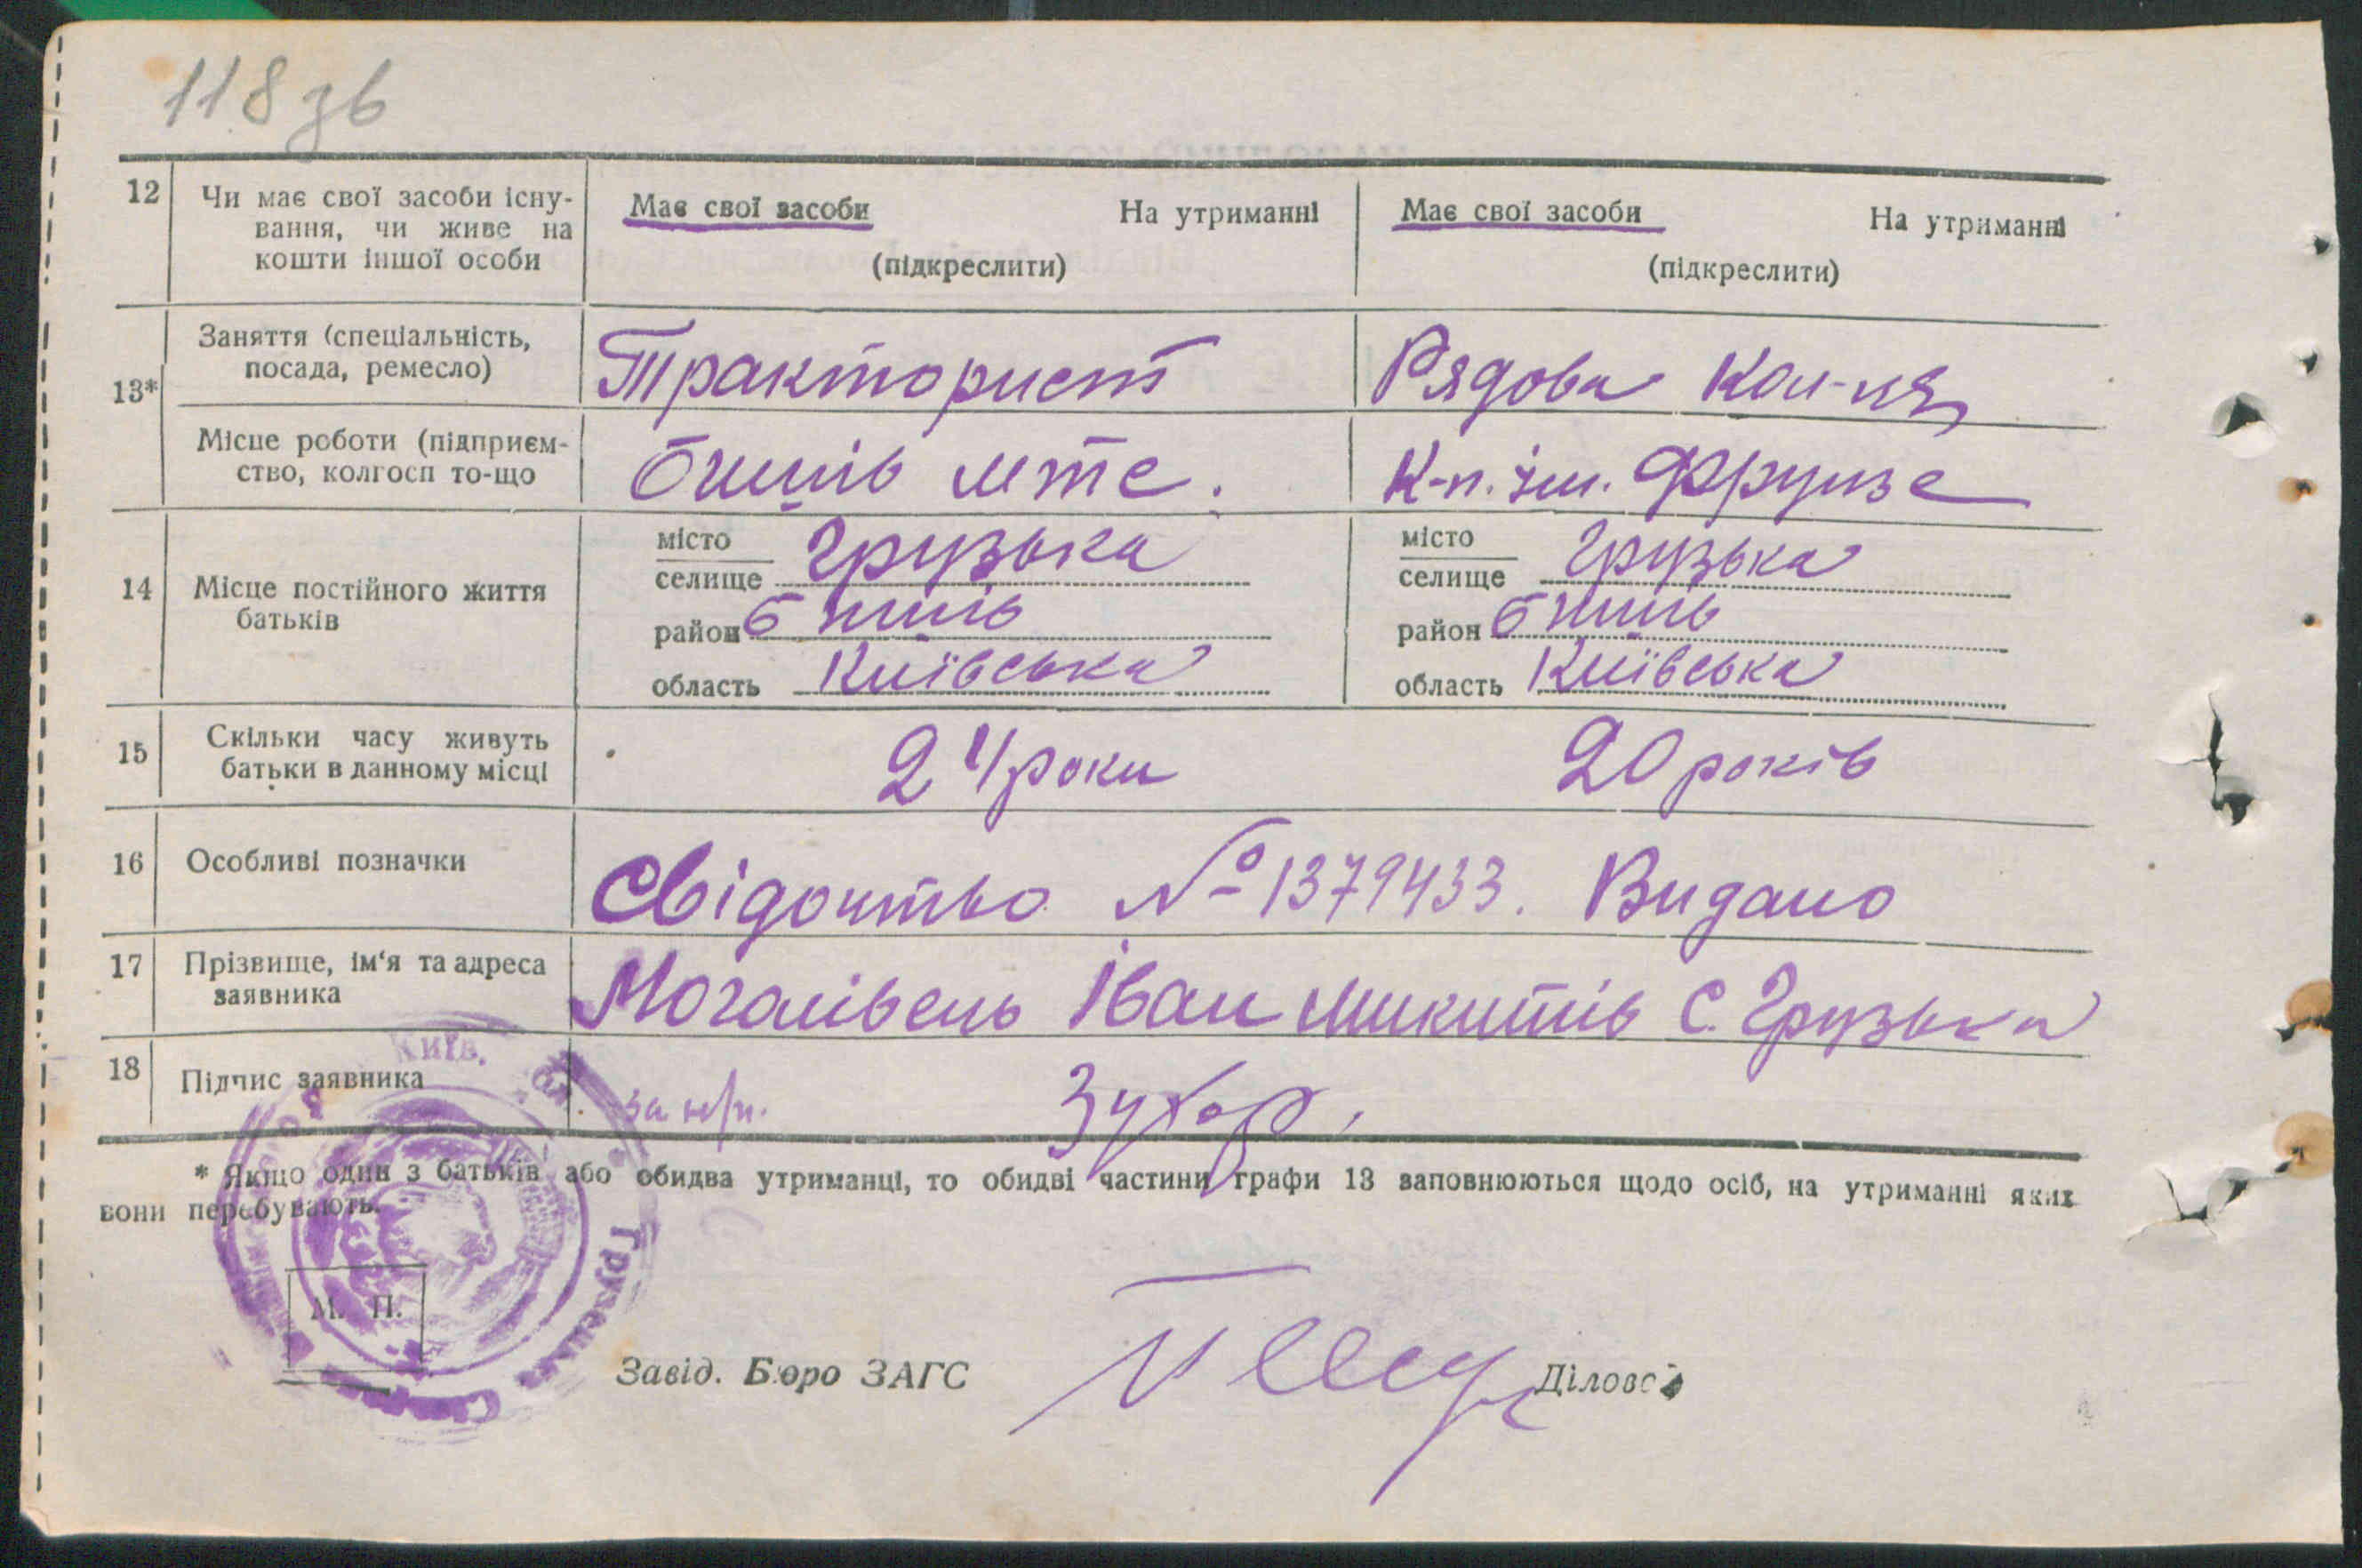 118 зв
12 Чи має свої засоби існу-
вання, чи живе на
кошти іншої особи
Має свої засоби На утриманні
(підкреслити)
Має свої засоби На утриманні
(підкреслити)
13*
Заняття (спеціальність,
посада, ремесло)
Тракторист
Рядова кол-ця
Місце роботи (підприєм-
ство, колгосп то-що
Бишів мтс.
К-п. ім. Фрунзе
14 Місце постійного життя
батьків
місто
селище Грузька
район Бишів
область Київська
місто
селище Грузька
район Бишів
область Київська
15 Скільки часу живуть
батьки в данному місці
24 роки
20 років
16 Особливі позначки
Свідоцтво №1379433. Видано
17 Прізвище, ім'я та адреса
заявника
Могалівець Іван Микитів с. Грузька
18 Підпис заявника
за н/п.
* Якщо один з батьків або обидва утриманці, то обидві частини графи 13 заповнюються щодо осіб, на утриманні яких
вони перебувають.
М. П.
Завід. Бюро ЗАГС
Діловод